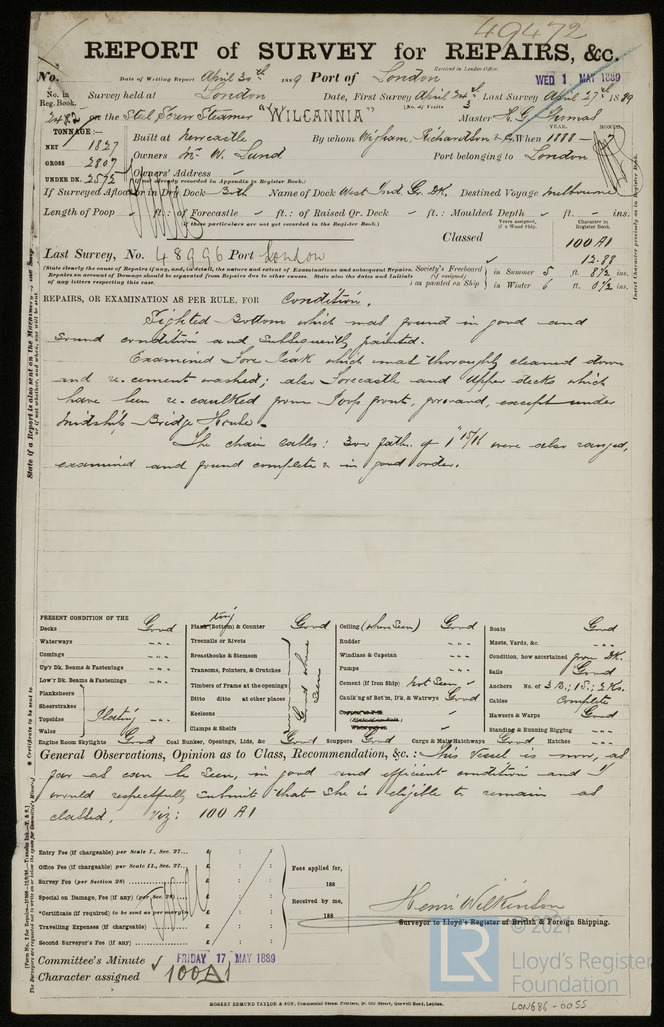 49472
REPORT of SURVEY for REPAIRS, &c.
Received in London Office
No. Date of Writing Report April 30th 1889 Port of London WED 1 MAY 1889
No. in Reg. Book. Survey held at London Date, First Survey April 24th Last Survey April 27th 1889
(No. of Visits 3
on the Steel Screw Steamer "WILCANNIA" Master
TONNAGE:—
NET 1827
GROSS 2807
UNDER DK. 2575
Built at Newcastle By whom Wigham, Richardson & Co When 1888 —
YEAR. MONTH.
Owners Mr W. Lund Port belonging to London
Owners' Address
(if not already recorded in Appendix to Register Book.)
If Surveyed Afloat or in Dry Dock Both Name of Dock West Ind. Gr. Dk. Destined Voyage Melbourne
Length of Poop ft.: of Forecastle ft.: of Raised Qr. Deck ft.: Moulded Depth ft. ins.
(If these particulars are not yet recorded in the Register Book.)
Years assigned, if a Wood Ship. Character in Register Book.
Classed 100 A1
12.88
Last Survey, No. 48996 Port London
(State clearly the cause of Repairs if any, and, in detail, the nature and extent of Examinations and subsequent Repairs. Repairs on account of Damage should be separated from Repairs due to other causes. State also the dates and Initials of any letters respecting this case.
Society's Freeboard (if assigned) as painted on Ship in Summer 5 ft. 8½ ins.
in Winter 6 ft. 0½ ins.
REPAIRS, OR EXAMINATION AS PER RULE, FOR Condition.
Sighted Bottom which was found in good and
sound condition and subsequently painted.
Examined Fore Peak which was thoroughly cleaned down
and re-cement washed; also Forecastle and Upper decks which
have been re-caulked from Poop front, forward, except under
midship Bridge House.
The chain cables: 300 faths. of 1 15/16 were also ranged,
examined and found complete & in good order.
PRESENT CONDITION OF THE
Decks Good
Waterways
Comings
Up'r Dk. Beams & Fastenings
Low'r Dk. Beams & Fastenings
Planksheers
Sheerstrakes
Topsides Plating
Wales
Engine Room Skylights Good
Plating Bottom & Counter Good
Treenails or Rivets
Breasthooks & Stemson
Transoms, Pointers, & Crutches
Timbers of Frame at the openings
Ditto ditto at other places
Keelsons
Clamps & Shelfs
Good where seen
Coal Bunker, Openings, Lids, &c. Good
Ceiling (when seen) Good
Rudder
Windlass & Capstan
Pumps
Cement (if Iron Ship) Not seen
Caulk'ng of Bot'm, D'k, & Waterwys Good
Scuppers Good Cargo & Main Hatchways Good Hatches
Boats Good
Masts, Yards, &c.
Condition, how ascertained from Dk.
Sails Good
Anchors No. of 3 B.; 1 S.; 2 Ks.
Cables Complete
Hawsers & Warps Good
Standing & Running Rigging
General Observations, Opinion as to Class, Recommendation, &c.: This Vessel is now, as
far as can be seen, in good and efficient condition and I
would respectfully submit that she is eligible to remain as
classed. Viz: 100 A1
Entry Fee (if chargeable) per Scale I., Sec. 27... £ : :
Office Fee (if chargeable) per Scale II., Sec. 27... £ : :
Survey Fee (per Section 28) £ : :
Special on Damage, Fee (if any) (per Sec. 28) £ : :
*Certificate (if required) to be sent as per margin £ : :
Travelling Expenses (if chargeable) £ : :
Second Surveyor's Fee (if any) £ : :
Fees applied for,
188
Received by me,
188
Henri Wilkinson
Surveyor to Lloyd's Register of British & Foreign Shipping.
Committee's Minute FRIDAY 17 MAY 1889
Character assigned 100A1
ROBERT EDMUND TAYLOR & SON, Commercial Steam Printers, 19, Old Street, Goswell Road, London.
© 2021
LR
Lloyd's Register
Foundation
LON686-0055